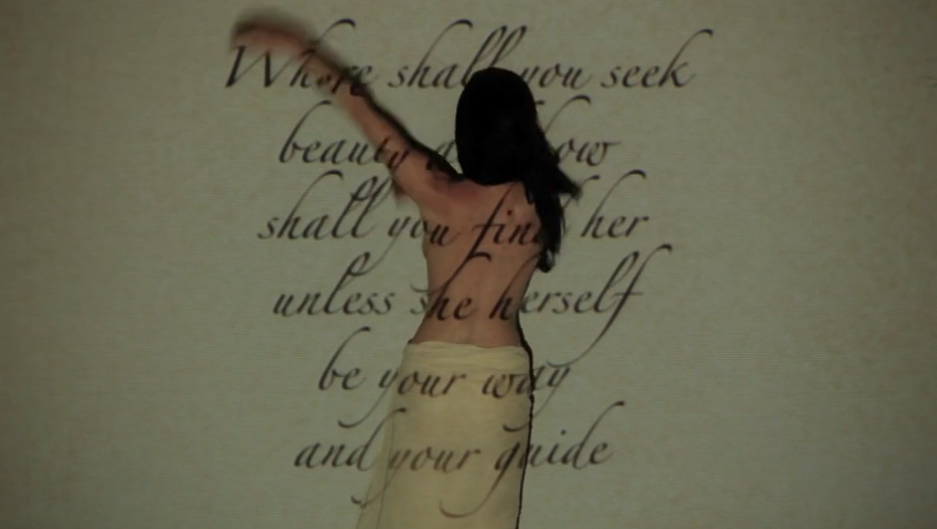 Where shall you seek
beauty a how
shall you find her
unless she herself
be your way
and your guide